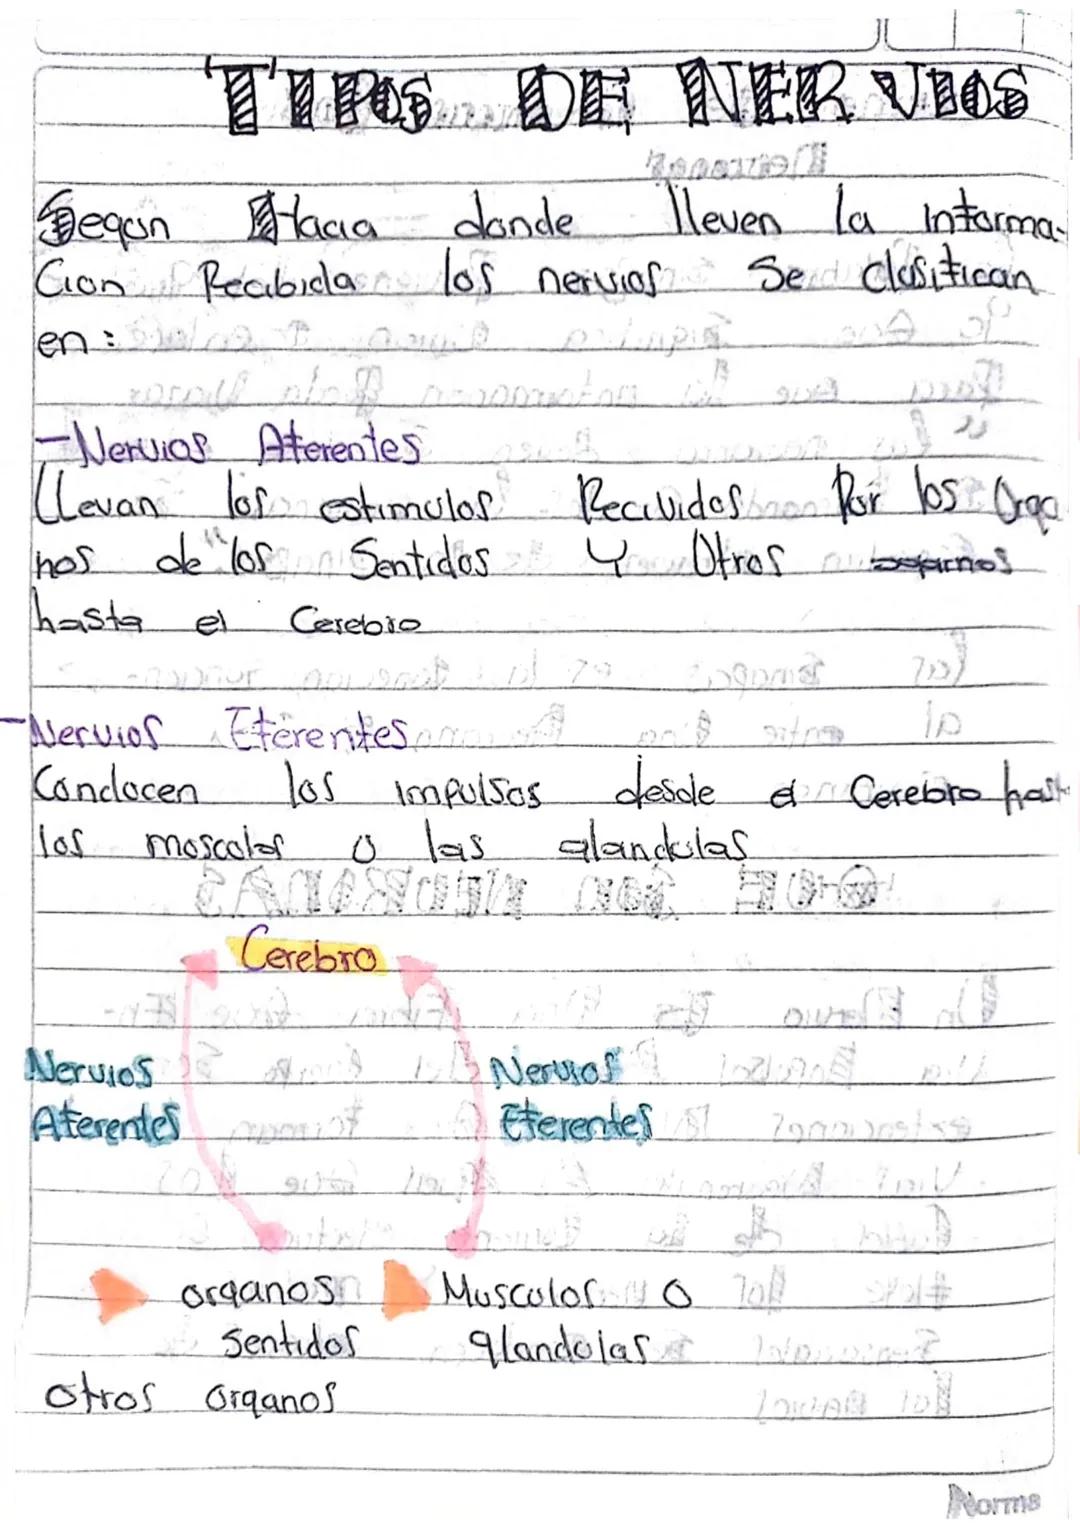 TIPOS DE NERVIOS
Segun Hacia donde lleven la informa-
Cion Recibida los nervios Se clasifican
en:
-Nervios Aferentes
Llevan los estimulos Recividos Por los Orga
nos de los Sentidos Y Otros organos
hasta el Cerebro
-Nervios Eferentes
Conducen los impulsos desde el Cerebro hasta
los musculos o las glandulas
Cerebro
Nervios Nervios
Aferentes Eferentes
organos Musculos o
Sentidos glandulas
otros organos
Norma